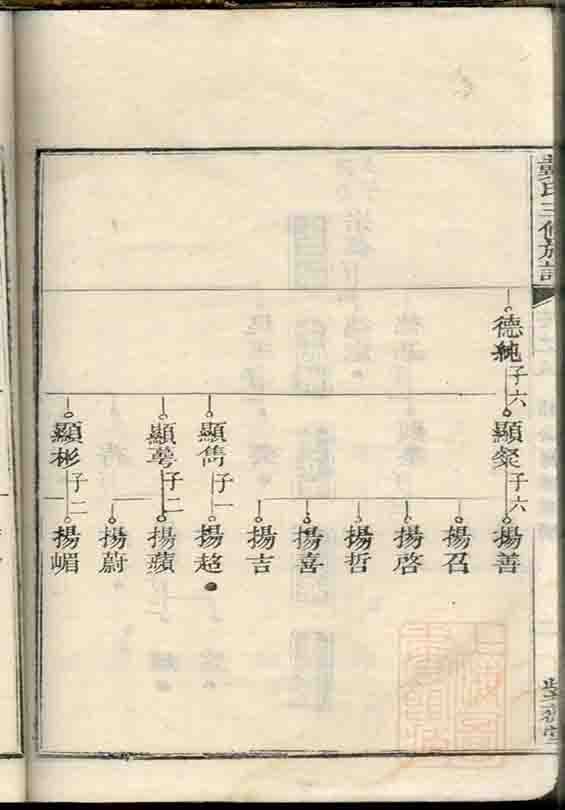 戴氏三修族譜
德純 子六
顯粲 子六
揚善
揚召
揚啓
揚哲
揚喜
揚吉
顯雋 子一
揚超
顯萼 子二
揚蘋
揚蔚
顯彬 子二
揚嵋